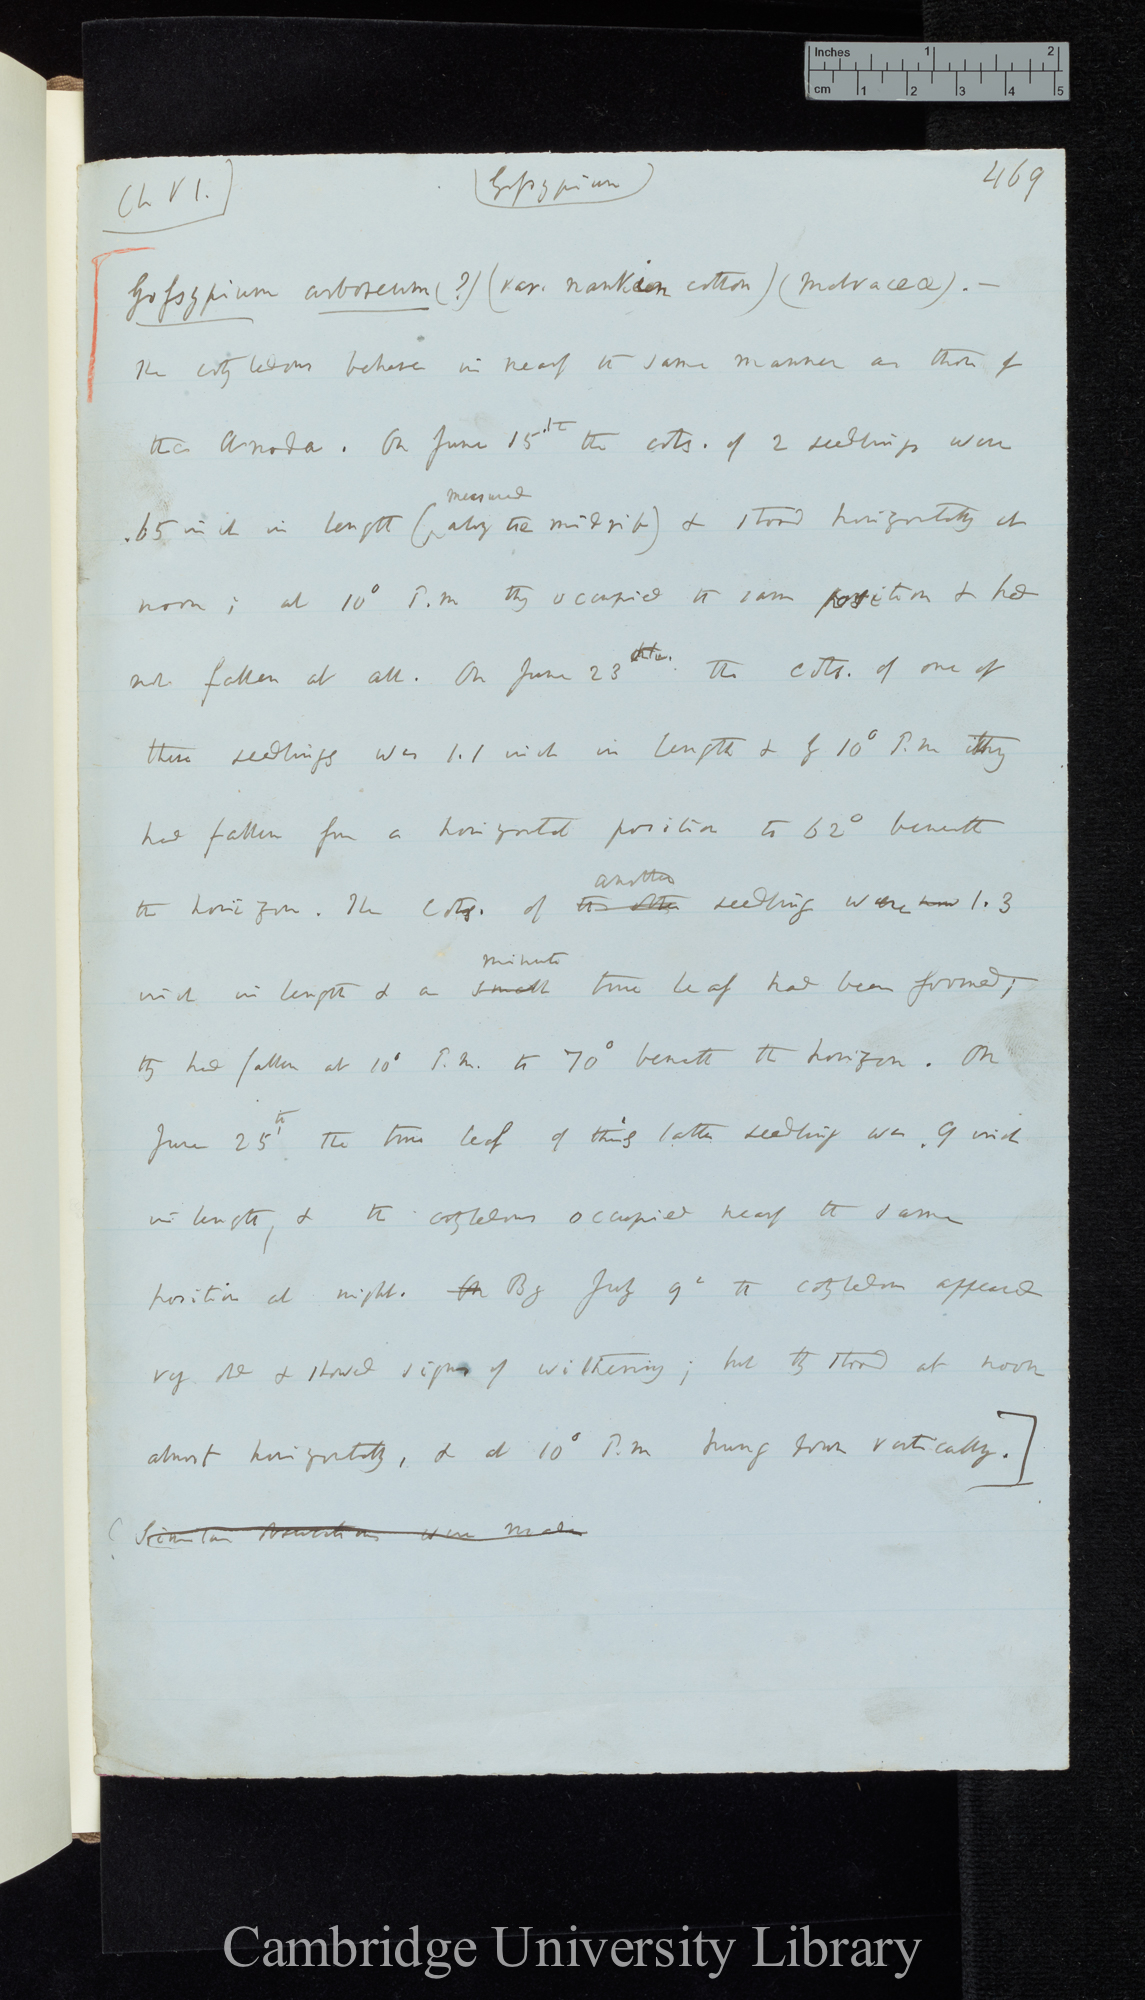 Inches 1 2
cm 1 2 3 4 5
Ch VI.
Gossypium
469
Gossypium arboreum (?) (var. nankin cotton) (malvaceæ). —
The cotyledons behave in nearly the same manner as those of
the Anoda. On June 15th the cots. of 2 seedlings were
measured
.65 inch in length (along the midrib) & stood horizontally at
noon; at 10° P.m they occupied the same position & had
not fallen at all. On June 23 the cots. of one of
these seedlings was 1.1 inch in length & by 10° P.m they
had fallen from a horizontal position to 62° beneath
another
the horizon. The cots. of the other seedling were 1.3
minute
inch in length & a small true leaf had been formed;
they had fallen at 10° P.m. to 70° beneath the horizon. On
June 25th the true leaf of this latter seedling was .9 inch
in length, & the cotyledons occupied nearly the same
position at night. On By July 9th the cotyledons appeared
very old & showed signs of withering; but they stood at noon
almost horizontally, & at 10° P.m hung down vertically.]
(Similar observations were made
Cambridge University Library